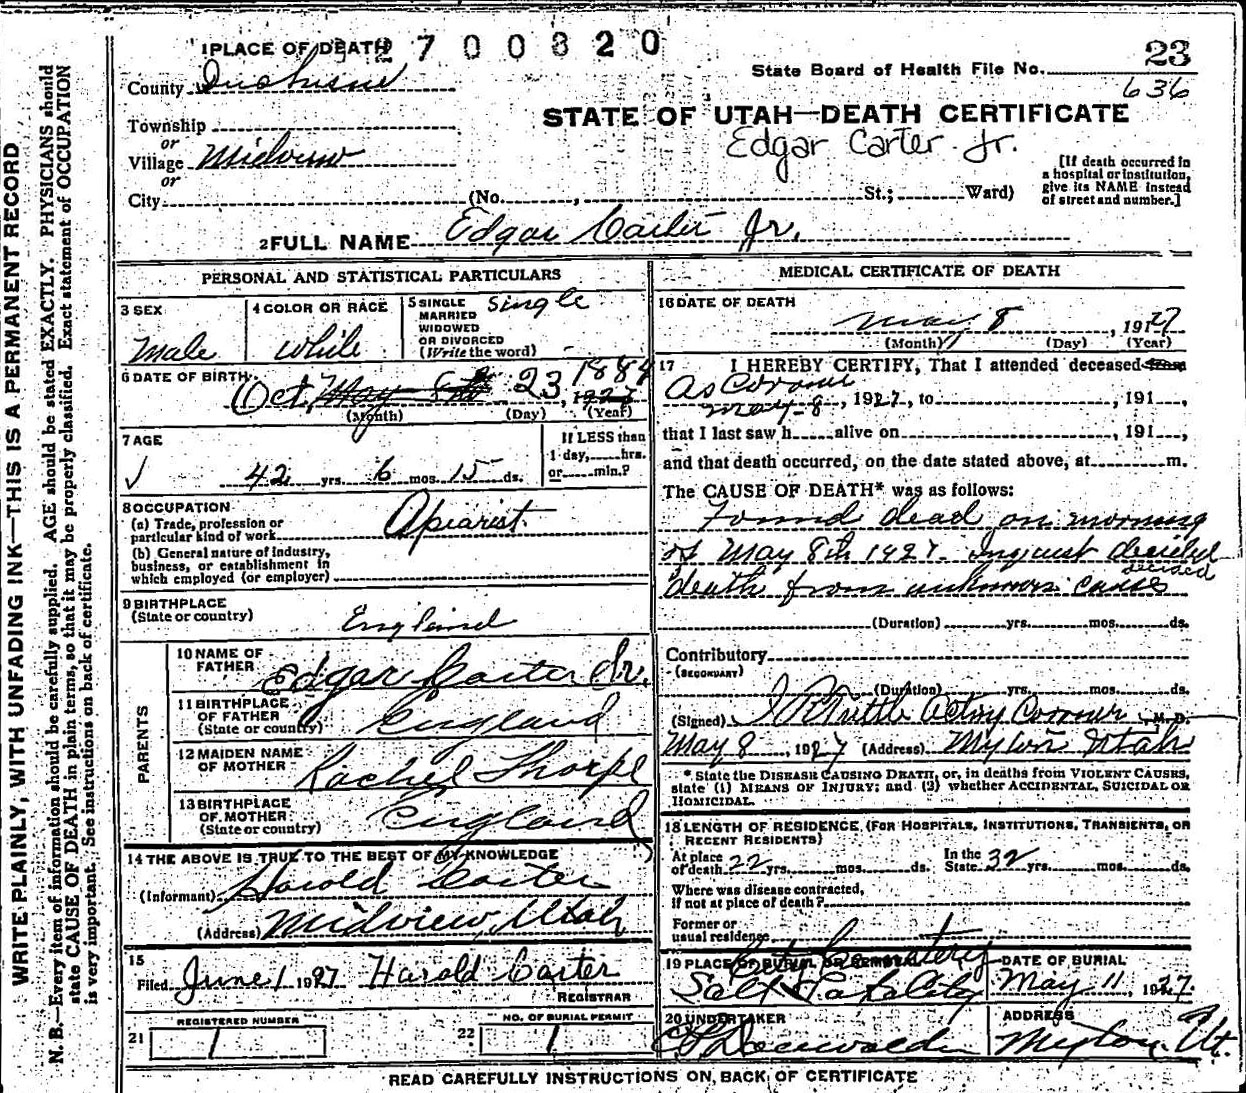 1 PLACE OF DEATH 2700320
23
State Board of Health File No.
636
County Duchesne
STATE OF UTAH—DEATH CERTIFICATE
Township
or
Village Midview
or
City (No. , St.; Ward)
Edgar Carter Jr.
[If death occurred in
a hospital or institution,
give its NAME instead
of street and number.]
2 FULL NAME Edgar Carter Jr.
PERSONAL AND STATISTICAL PARTICULARS
3 SEX
Male
4 COLOR OR RACE
White
5 SINGLE
MARRIED
WIDOWED
OR DIVORCED
(Write the word)
Single
6 DATE OF BIRTH
Oct. May 8th 23, 1884 1927
(Month) (Day) (Year)
7 AGE
42 yrs. 6 mos. 15 ds.
If LESS than
1 day, hrs.
or min.?
8 OCCUPATION
(a) Trade, profession or
particular kind of work Apiarist
(b) General nature of industry,
business, or establishment in
which employed (or employer)
9 BIRTHPLACE
(State or country) England
PARENTS
10 NAME OF
FATHER Edgar Carter Sr.
11 BIRTHPLACE
OF FATHER
(State or country) England
12 MAIDEN NAME
OF MOTHER Rachel Thorpe
13 BIRTHPLACE
OF MOTHER
(State or country) England
14 THE ABOVE IS TRUE TO THE BEST OF MY KNOWLEDGE
(Informant) Harold Carter
(Address) Midview, Utah
15
Filed June 1 1927 Harold Carter
REGISTRAR
21 REGISTERED NUMBER
1
22 NO. OF BURIAL PERMIT
1
MEDICAL CERTIFICATE OF DEATH
16 DATE OF DEATH
May 8, 1927
(Month) (Day) (Year)
17 I HEREBY CERTIFY, That I attended deceased from
As Coroner
May 8, 1927, to , 191 ,
that I last saw h alive on , 191 ,
and that death occurred, on the date stated above, at m.
The CAUSE OF DEATH* was as follows:
Found dead on morning
of May 8th 1927. Inquest decided
decided
death from unknown cause
(Duration) yrs. mos. ds.
Contributory
(SECONDARY)
(Duration) yrs. mos. ds.
(Signed) Tuttle Acting Coroner, M.D.
May 8, 1927 (Address) Myton Utah
* State the DISEASE CAUSING DEATH, or, in deaths from VIOLENT CAUSES,
state (1) MEANS OF INJURY; and (2) whether ACCIDENTAL, SUICIDAL OR
HOMICIDAL.
18 LENGTH OF RESIDENCE (FOR HOSPITALS, INSTITUTIONS, TRANSIENTS, OR
RECENT RESIDENTS)
At place
of death 22 yrs. mos. ds. In the
State 32 yrs. mos. ds.
Where was disease contracted,
if not at place of death?
Former or
usual residence
19 PLACE OF BURIAL OR REMOVAL
City Cemetery
Salt Lake City
DATE OF BURIAL
May 11, 1927.
20 UNDERTAKER
ADDRESS
Myton, Ut.
READ CAREFULLY INSTRUCTIONS ON BACK OF CERTIFICATE
WRITE PLAINLY, WITH UNFADING INK—THIS IS A PERMANENT RECORD
N. B.—Every item of information should be carefully supplied. AGE should be stated EXACTLY. PHYSICIANS should
state CAUSE OF DEATH in plain terms, so that it may be properly classified. Exact statement of OCCUPATION
is very important. See instructions on back of certificate.